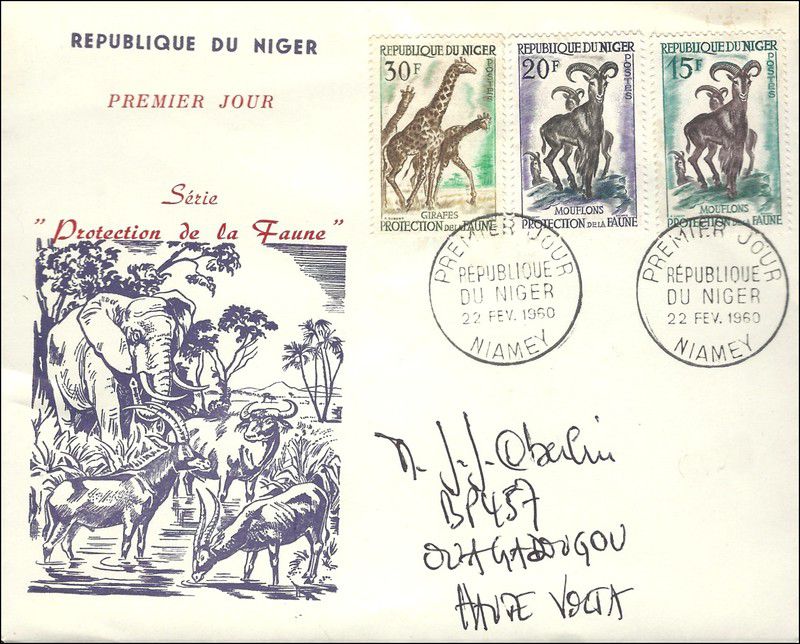 REPUBLIQUE DU NIGER
PREMIER JOUR
Série
"Protection de la Faune"
REPUBLIQUE DU NIGER
30F
POSTES
GIRAFES
PROTECTION DE LA FAUNE
REPUBLIQUE DU NIGER
20F
POSTES
MOUFLONS
PROTECTION DE LA FAUNE
REPUBLIQUE DU NIGER
15F
POSTES
MOUFLONS
PROTECTION DE LA FAUNE
PREMIER JOUR
RÉPUBLIQUE
DU NIGER
22 FEV. 1960
NIAMEY
PREMIER JOUR
RÉPUBLIQUE
DU NIGER
22 FEV. 1960
NIAMEY
J.J. Oberlin
BP 457
OUAGADOUGOU
HAUTE VOLTA